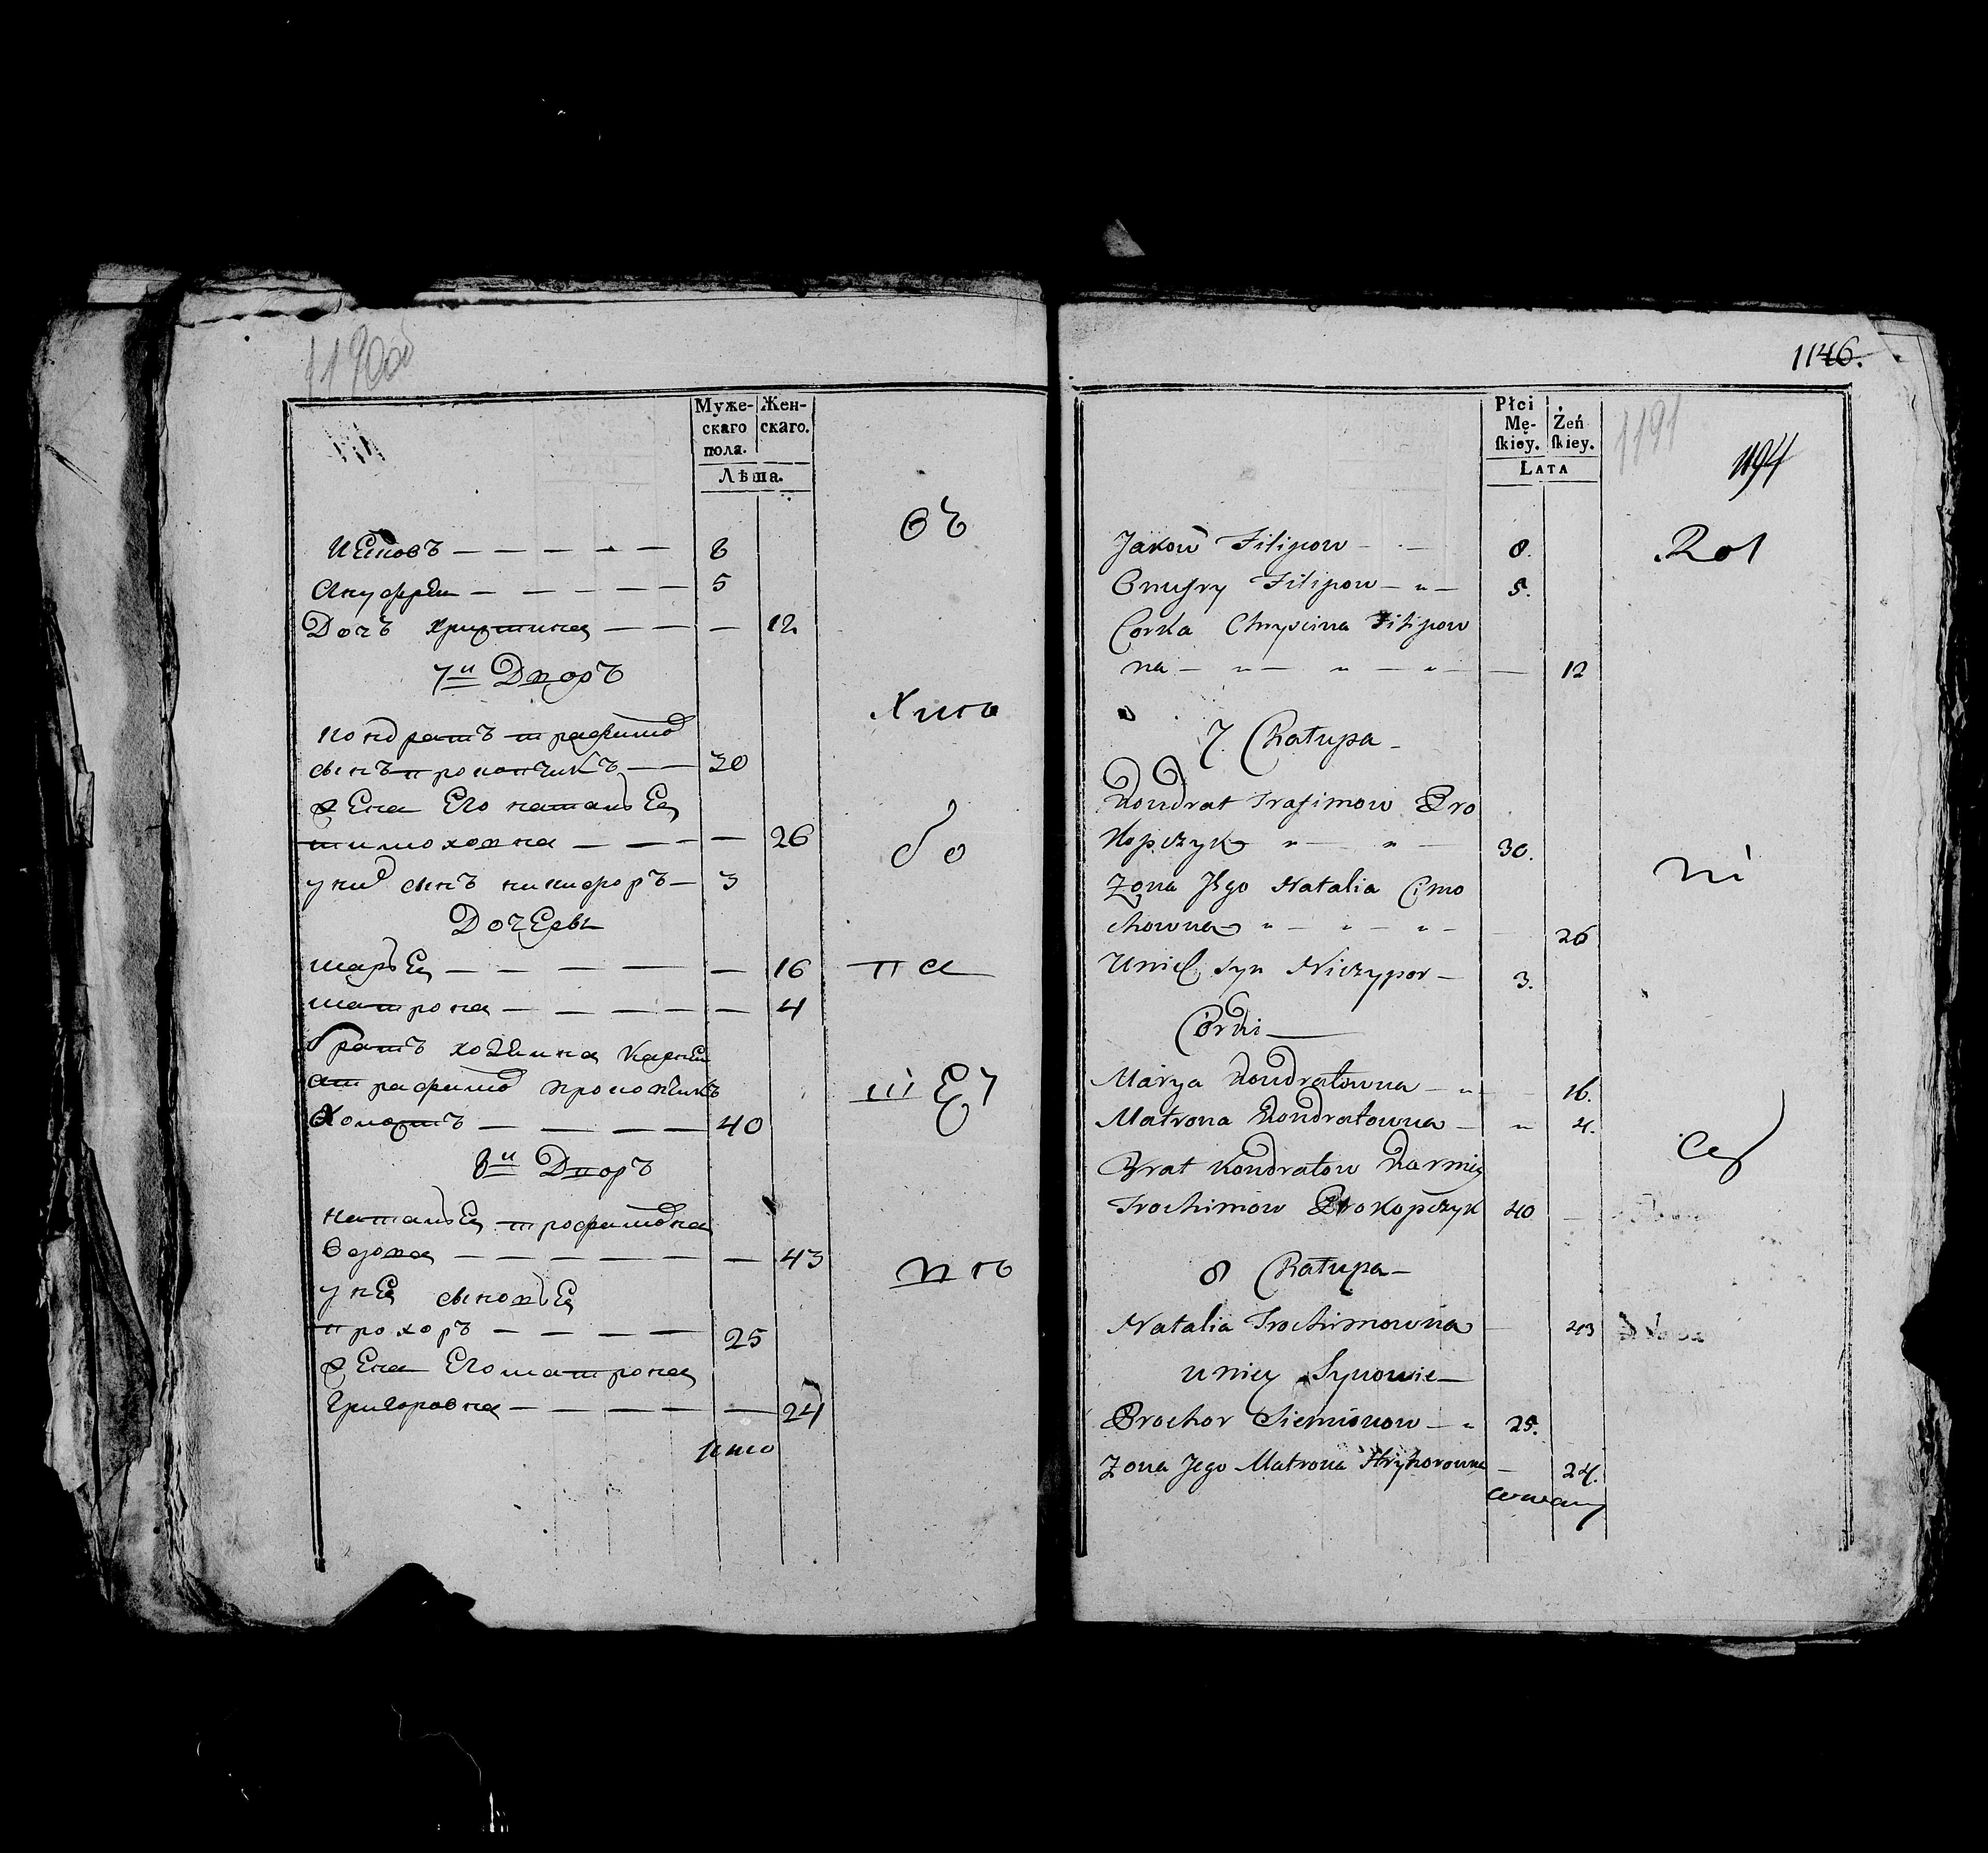 1190об
Муже-
скаго
пола.
Жен-
скаго.
Лѣта.
Иековъ — — — — — 8
Ануфрей — — — — — 5
Дочъ христина — — — 12
7й Дворъ
кондратъ трафимов
сынъ прокопчикъ — — 30
жена Его наталья
тимоховна — — — — 26
у них сынъ никифоръ — 3
Дочери
марья — — — — — 16
матрона — — — — — — 4
братъ хозяина карней
трафимов прокопчикъ
холостъ — — — — 40
8й Дворъ
наталья трофимовна
вдова — — — — — — 43
у нея сыновья
прохоръ — — — — 25
жена Его матрона
григоровна — — — — — 24
съ
хис
бо
па
шЕу
1146.
Płci
Mę-
skiey.
Żeń
skiey.
Lata
1191
1194
Jakow Filipow — — 8.
Onufry Filipow — „ — 5.
Corka Chryscina Filipow
na — „ — „ — „ — 12
7. Chatupa —
Kondrat Trafimow Pro
kopczyk „ — „ — 30.
Zona Jego Natalia Cimo
chowna „ — „ — „ — 26
Unich Syn Niczypor — 3.
Corki —
Marya Kondratowna — „ — 16.
Matrona Kondratowna — „ 4.
Brat Kondratow Karniey
Trochimow Prokopczyk 40 —
8 Chatupa —
Natalia Trochimowna — 43
u niey Synowie —
Prochor Siemionow — „ 25.
Zona Jego Matrona Hryhorowna — 24.
Rot
ni